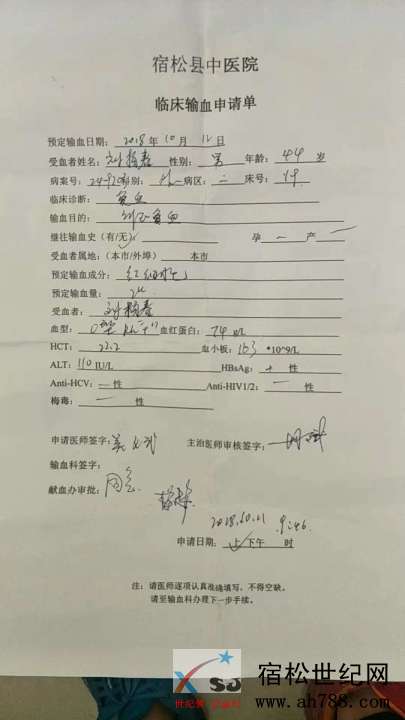 宿松县中医院
临床输血申请单
预定输血日期: 2018 年 10 月 12 日
受血者姓名: 性别: 男 年龄: 44 岁
病案号: 科别: 外一 病区: 二 床号: 19
临床诊断: 贫血
输血目的: 纠正贫血
继往输血史 (有/无) 孕 一 产 一
受血者属地: (本市/外埠) 本市
预定输血成分: 红细胞
预定输血量: 2u
受血者:
血型: O型 Rh"+" 血红蛋白: 74 g/L
HCT: 22.2 血小板: 163 *10^9/L
ALT: 110 IU/L HBsAg: + 性
Anti-HCV: 一 性 Anti-HIV1/2: 一 性
梅毒: 一 性
申请医师签字: 主治医师审核签字:
输血科签字:
献血办审批: 同意
2018.10.11 9:46
申请日期: 上/下午 时
注: 请医师逐项认真准确填写, 不得空缺.
请至输血科办理下一步手续.
XSJ
宿松世纪网
www.ah788.com